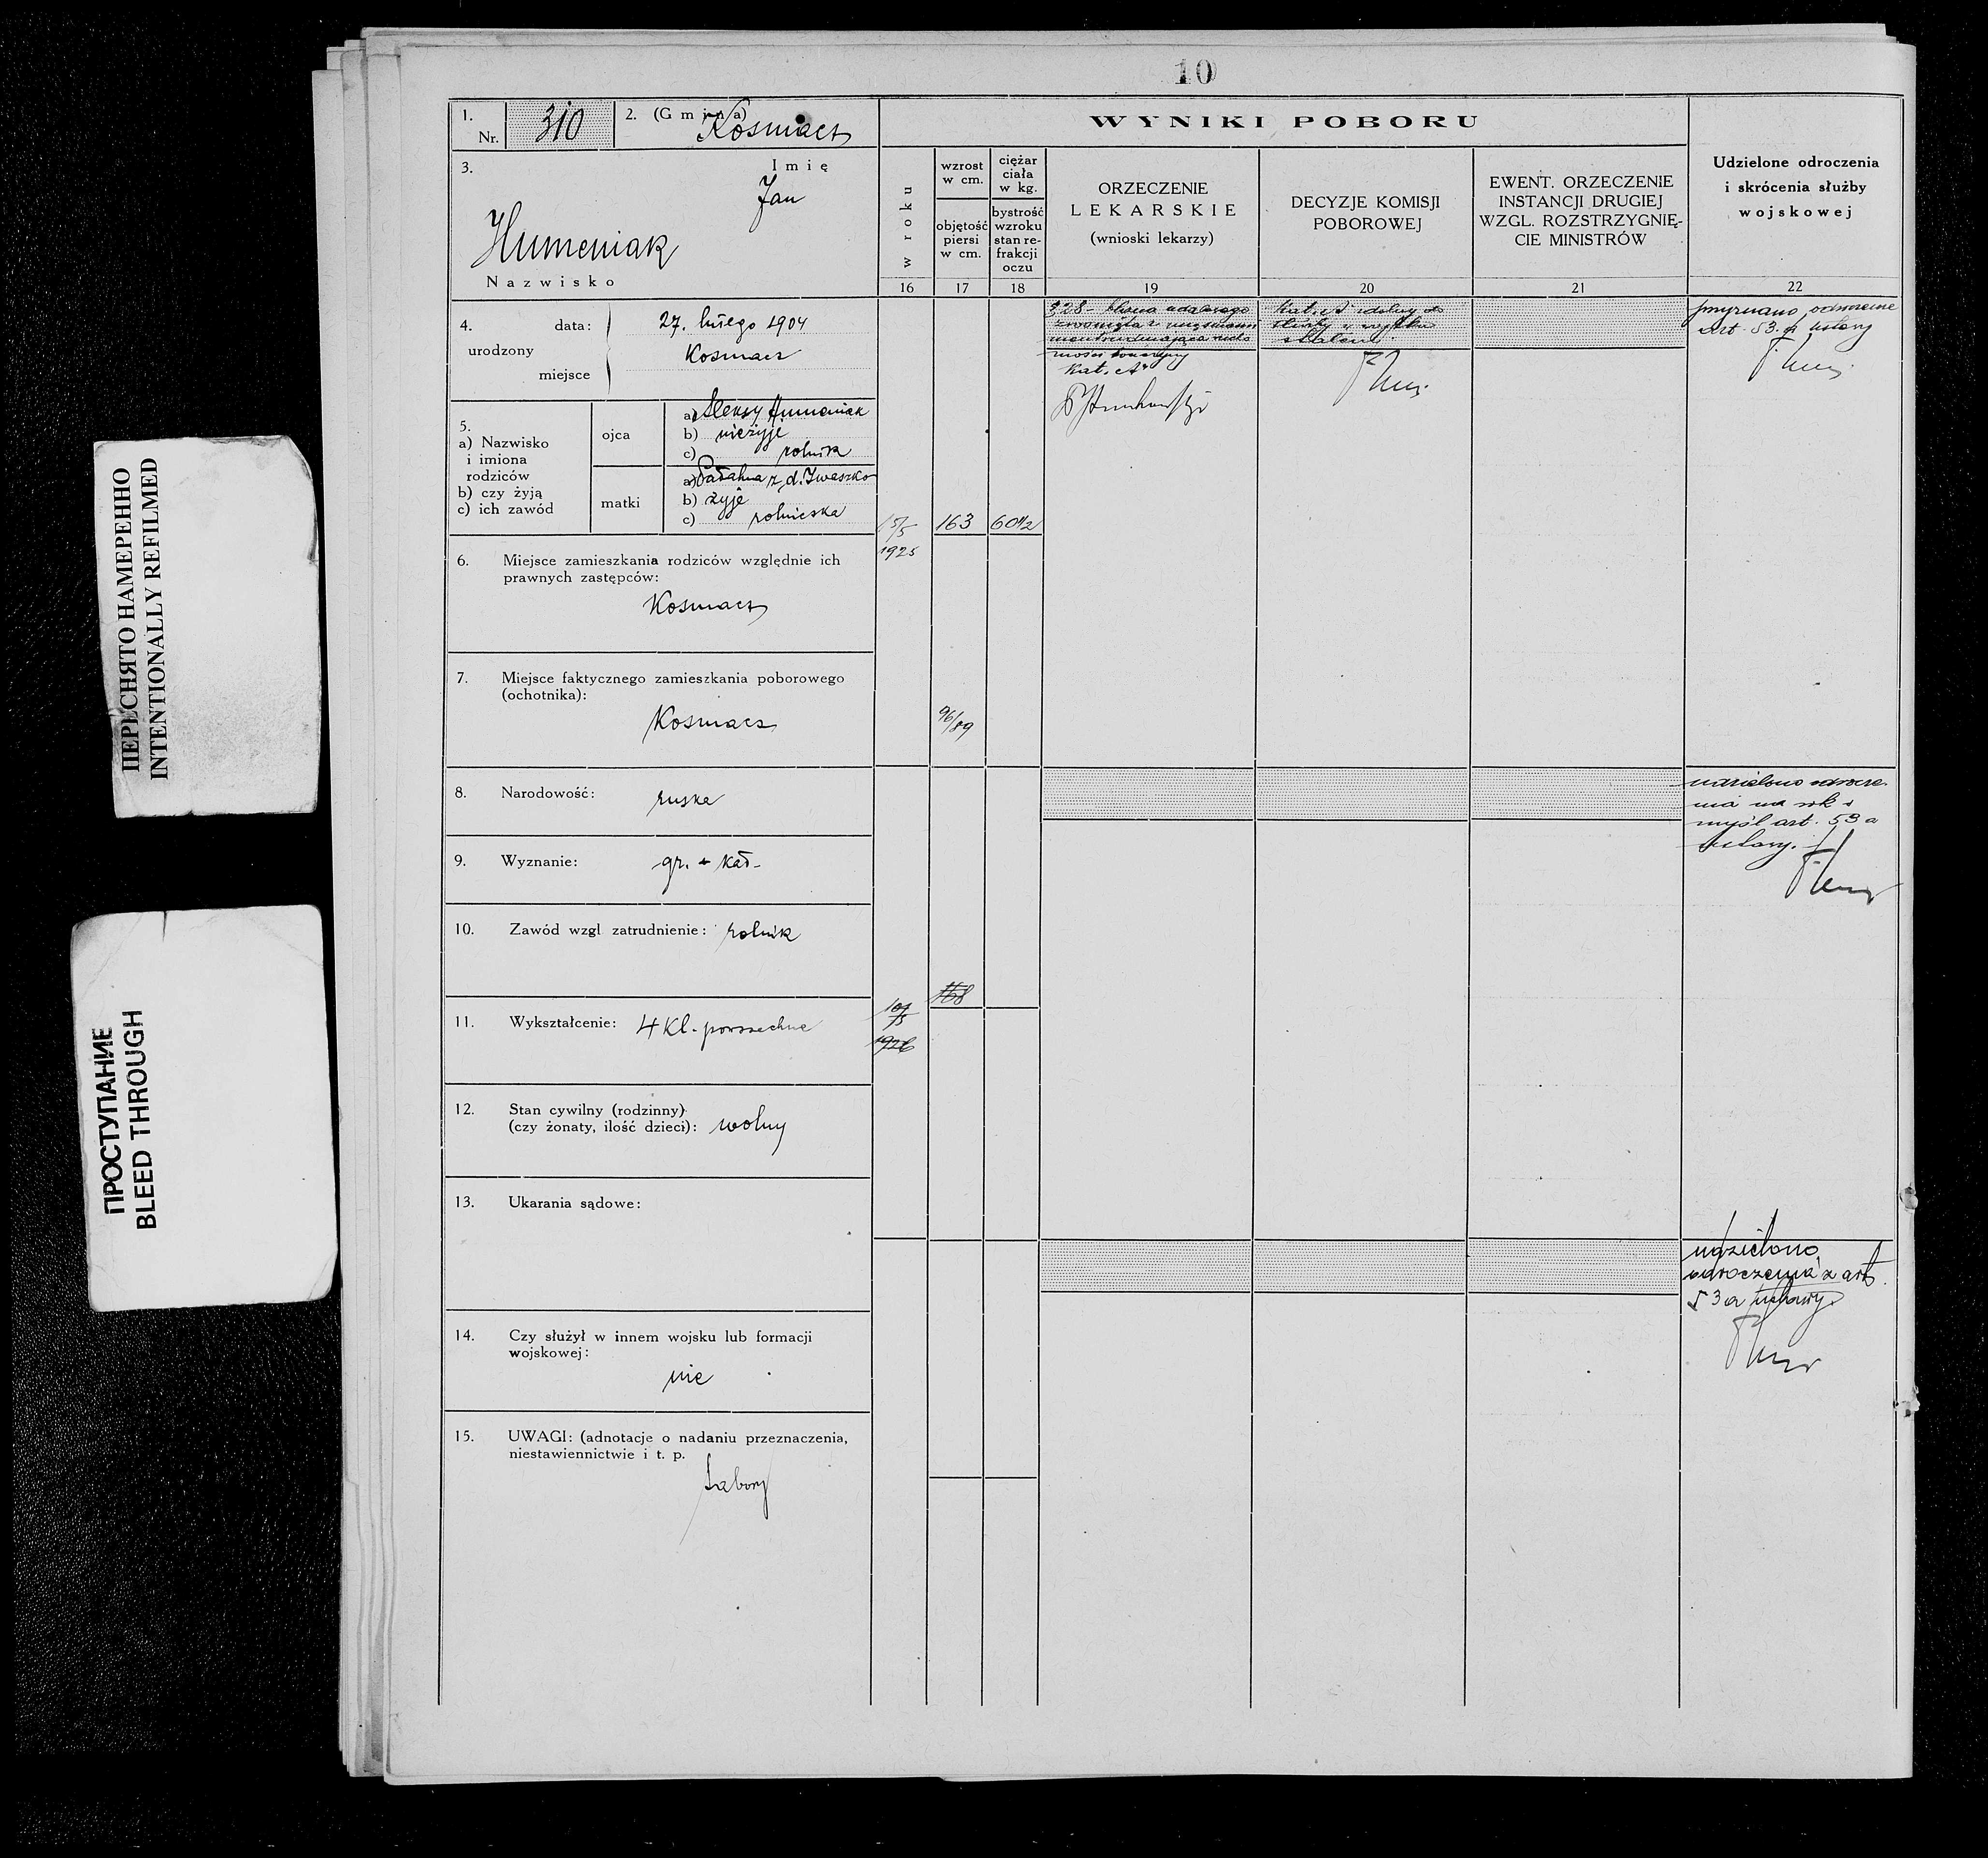 10
1.
Nr. 310
2. (Gmina) Kosmacz
3. Imię
Jan
Humeniak
Nazwisko
4. urodzony
data: 27. lutego 1904
miejsce Kosmacz
5.
a) Nazwisko
i imiona
rodziców
b) czy żyją
c) ich zawód
ojca
a) Aleksy Humeniak
b) nieżyje
c) rolnik
matki
a) Parańka z d. Iwaszko
b) żyje
c) rolniczka
6. Miejsce zamieszkania rodziców względnie ich
prawnych zastępców:
Kosmacz
7. Miejsce faktycznego zamieszkania poborowego
(ochotnika):
Kosmacz
8. Narodowość: ruska
9. Wyznanie: gr. - kat -
10. Zawód wzgl zatrudnienie: rolnik
11. Wykształcenie: 4 kl. powszechne
12. Stan cywilny (rodzinny)
(czy żonaty, ilość dzieci): wolny
13. Ukarania sądowe:
14. Czy służył w innem wojsku lub formacji
wojskowej:
nie
15. UWAGI: (adnotacje o nadaniu przeznaczenia,
niestawiennictwie i t. p.
WYNIKI POBORU
w roku
16
wzrost
w cm.
objętość
piersi
w cm.
17
ciężar
ciała
w kg.
bystrość
wzroku
stan re-
frakcji
oczu
18
ORZECZENIE
LEKARSKIE
(wnioski lekarzy)
19
DECYZJE KOMISJI
POBOROWEJ
20
EWENT. ORZECZENIE
INSTANCJI DRUGIEJ
WZGL. ROZSTRZYGNIĘ-
CIE MINISTRÓW
21
Udzielone odroczenia
i skrócenia służby
wojskowej
22
1925
163
60 1/2
96/89
168
1926
§ 28 - blizna
kat. A
Kat. A zdolny do
służby w wojsku
stałem.
przyznano odroczenie
art. 53. a ustawy
udzielono odrocze-
nia na rok w
myśl art. 53 a
ustawy.
udzielono
odroczenia z art.
53 a ustawy
ПЕРЕСНЯТО НАМЕРЕННО
INTENTIONALLY REFILMED
ПРОСТУПАНИЕ
BLEED THROUGH